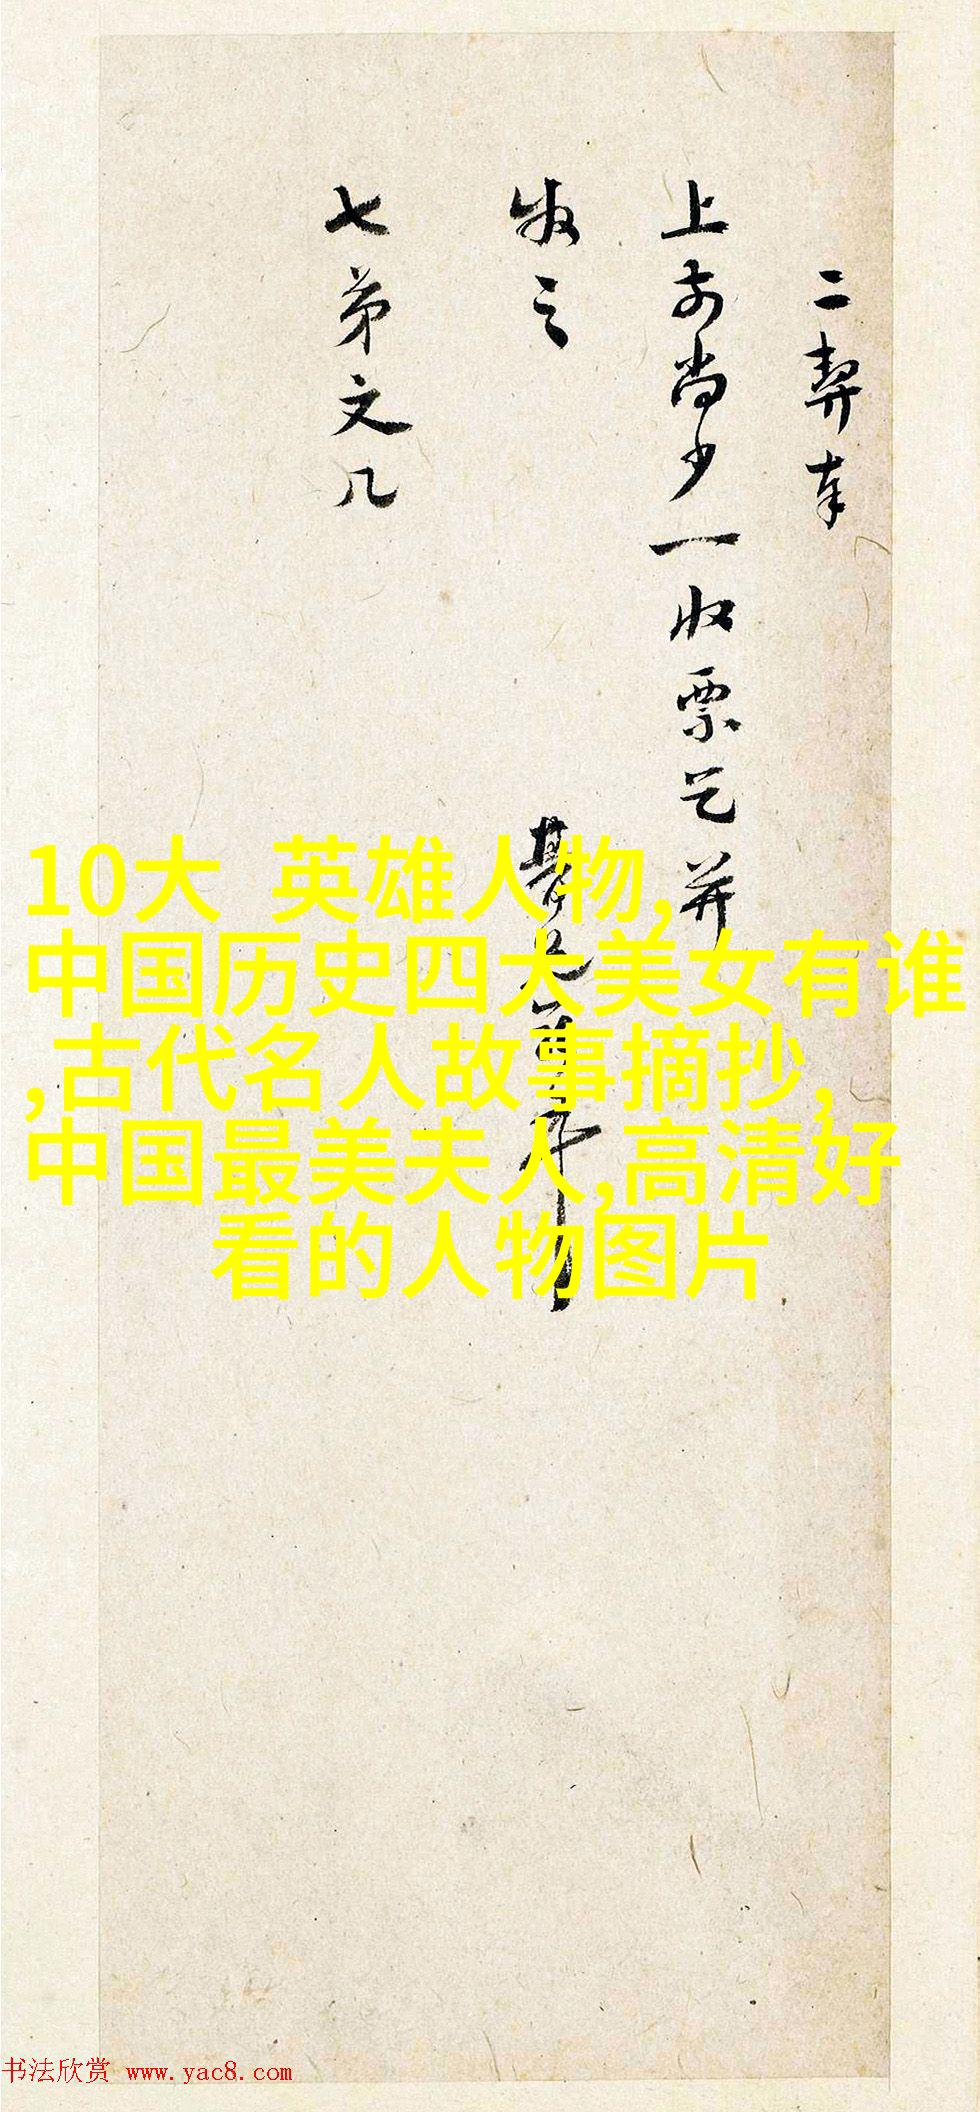 二契奉
上前尚少一收票乞并
收之
七弟文几
10大 英雄人物,
中国历史四大美女有谁
,古代名人故事摘抄,
中国最美夫人,高清好
看的人物图片
书法欣赏 www.yac8.com